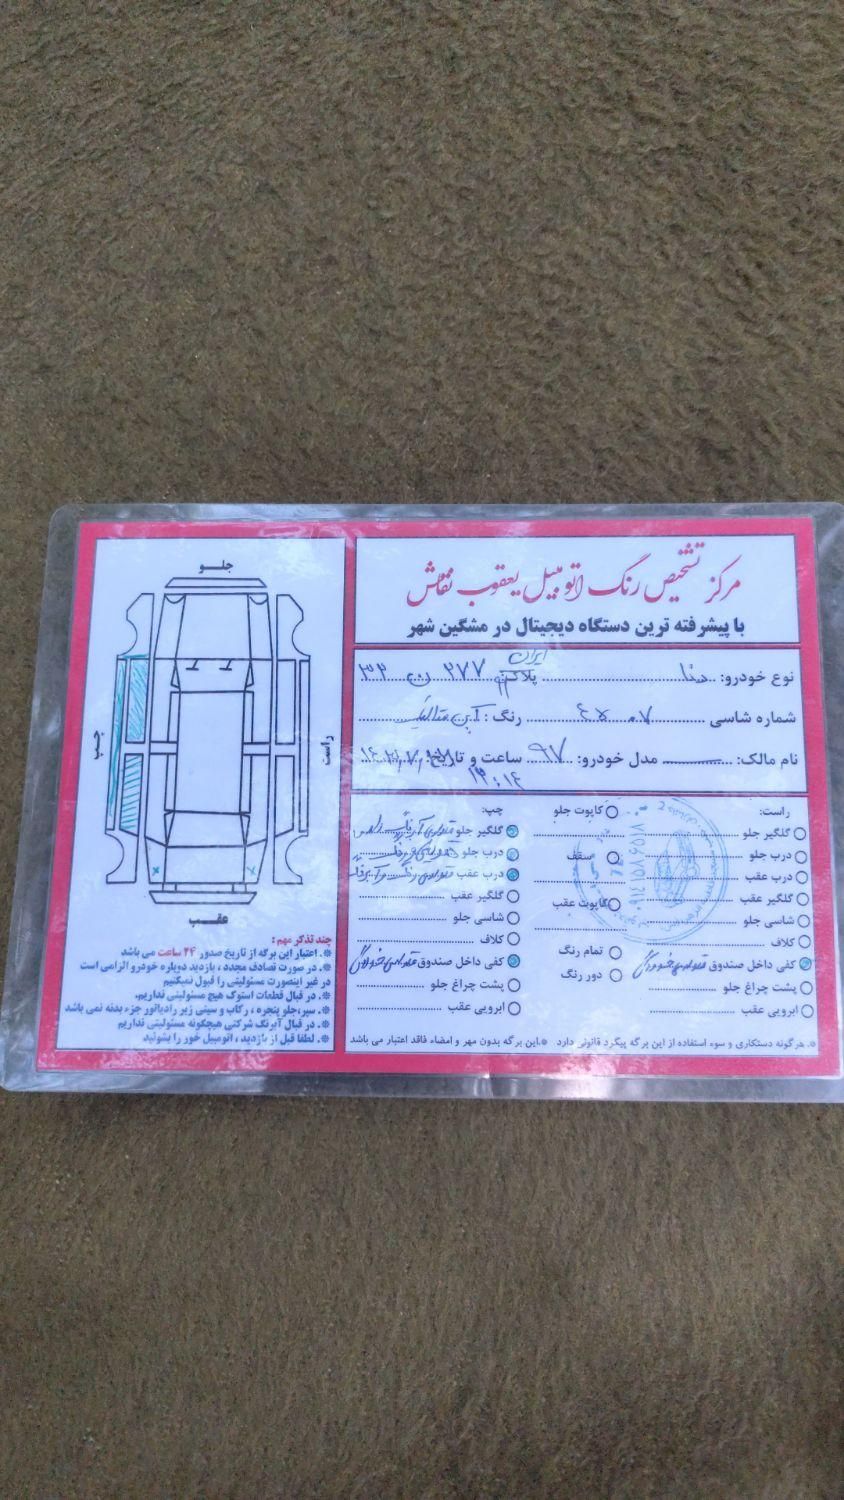 مرکز تشخیص رنگ اتومبیل یعقوب نقاش
با پیشرفته ترین دستگاه دیجیتال در مشگین شهر
نوع خودرو: دنا پلاک: ایران ۲۷۷ ۳۲
شماره شاسی رنگ: آبی متالیک
نام مالک: مدل خودرو: ۹۷ ساعت و تاریخ:
۱۳:۱۴
راست:
گلگیر جلو
درب جلو
درب عقب
گلگیر عقب
شاسی جلو
کلاف
کفی داخل صندوق
پشت چراغ جلو
ابرویی عقب
کاپوت جلو
سقف
کاپوت عقب
تمام رنگ
دور رنگ
چپ:
گلگیر جلو
درب جلو
درب عقب
گلگیر عقب
شاسی جلو
کلاف
کفی داخل صندوق
پشت چراغ جلو
ابرویی عقب
※. هرگونه دستکاری و سوء استفاده از این برگه پیگرد قانونی دارد ※.این برگه بدون مهر و امضاء فاقد اعتبار می باشد
جلو
چپ
راست
عقب
چند تذکر مهم:
※. اعتبار این برگه از تاریخ صدور ۲۴ ساعت می باشد
※. در صورت تصادف مجدد ، بازدید دوباره خودرو الزامی است
در غیر اینصورت مسئولیتی را قبول نمیکنیم
※. در قبال قطعات استوک هیچ مسئولیتی نداریم.
※. سپر،جلو پنجره ، رکاب و سینی زیر رادیاتور جزء بدنه نمی باشد
※. در قبال آبرنگ شرکتی هیچگونه مسئولیتی نداریم
※. لطفا قبل از بازدید ، اتومبیل خور را بشوئید